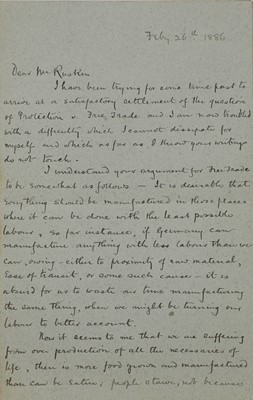 Feby 26th 1886
Dear Mr Ruskin
I have been trying for some time past to
arrive at a satisfactory settlement of the question
of Protection v. Free Trade and I am now troubled
with a difficulty which I cannot dissipate for
myself and which as far as I know your writings
do not touch.
I understand your argument for Free Trade
to be somewhat as follows — It is desirable that
everything should be manufactured in those places
where it can be done with the least possible
labour, so for instance, if Germany can
manufacture anything with less labour than we
can, owing either to proximity of raw material,
ease of transit, or some such cause - it is
absurd for us to waste our time manufacturing
the same thing, when we might be turning our
labour to better account.
Now it seems to me that we are suffering
from over production of all the necessaries of
life, there is more food grown and manufactured
than can be eaten; people starve, not because